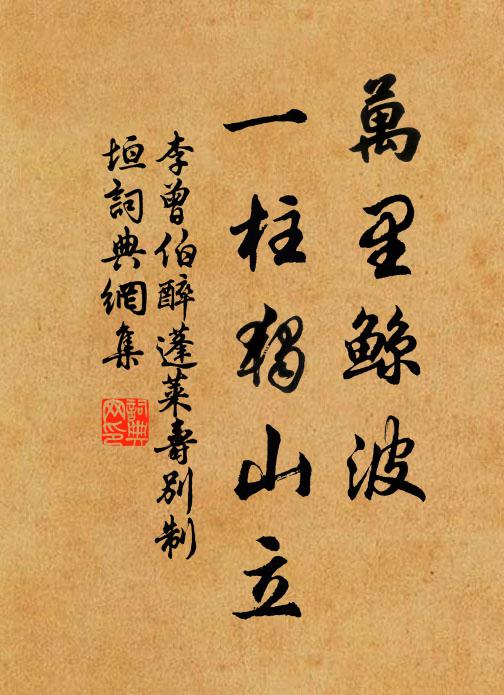 萬里鯨波
一柱獨山立
李曾伯醉蓬萊壽別制
垣詞典網集
詞典
网印